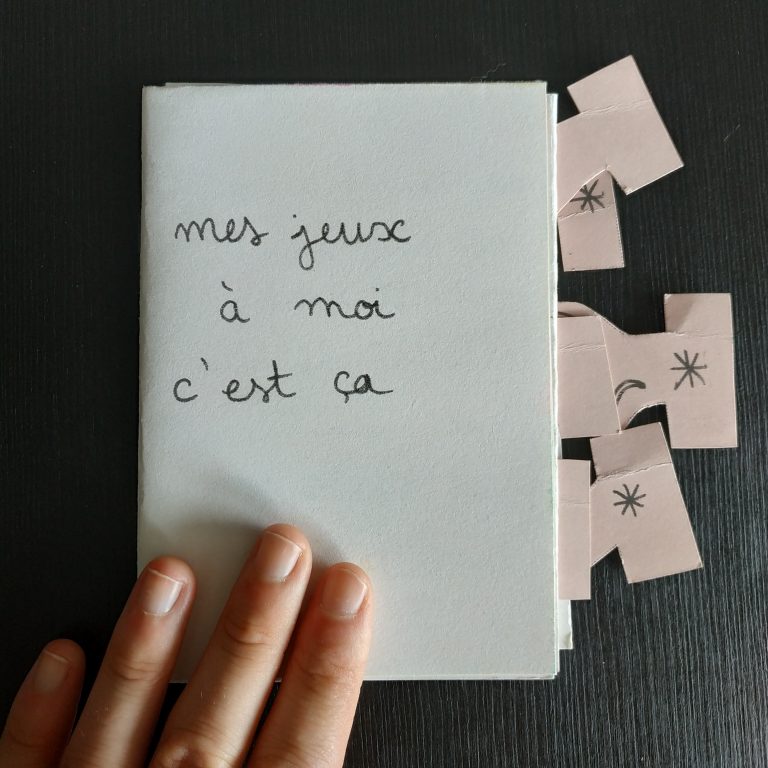 mes jeux
à moi
c'est ça